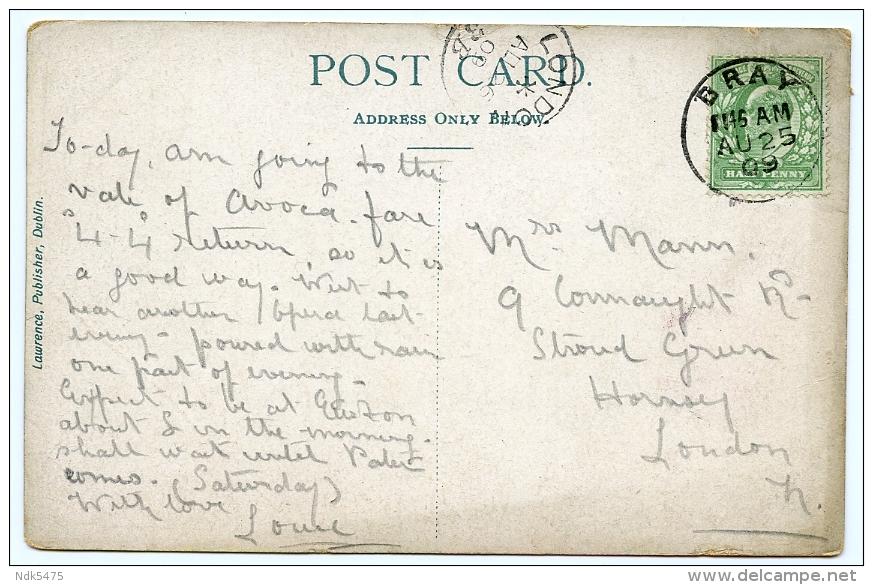 POST CARD.
ADDRESS ONLY BELOW.
LONDON
AU 26
09
BRAY
11 45 AM
AU 25
09
HALFPENNY
Lawrence, Publisher, Dublin.
To-day, am going to the
vale of Avoca. fare
4s-4d return, so it is
a good way. Went to
hear another Opera last
evening - poured with rain
one part of evening -
Expect to be at Euston
about 6 in the morning.
shall wait until Pater
comes. (Saturday)
With love
Louie
Mrs Mann.
9 Connaught Rd-
Stroud Green
Hornsey
London
N.
Ndk5475
www.delcampe.net